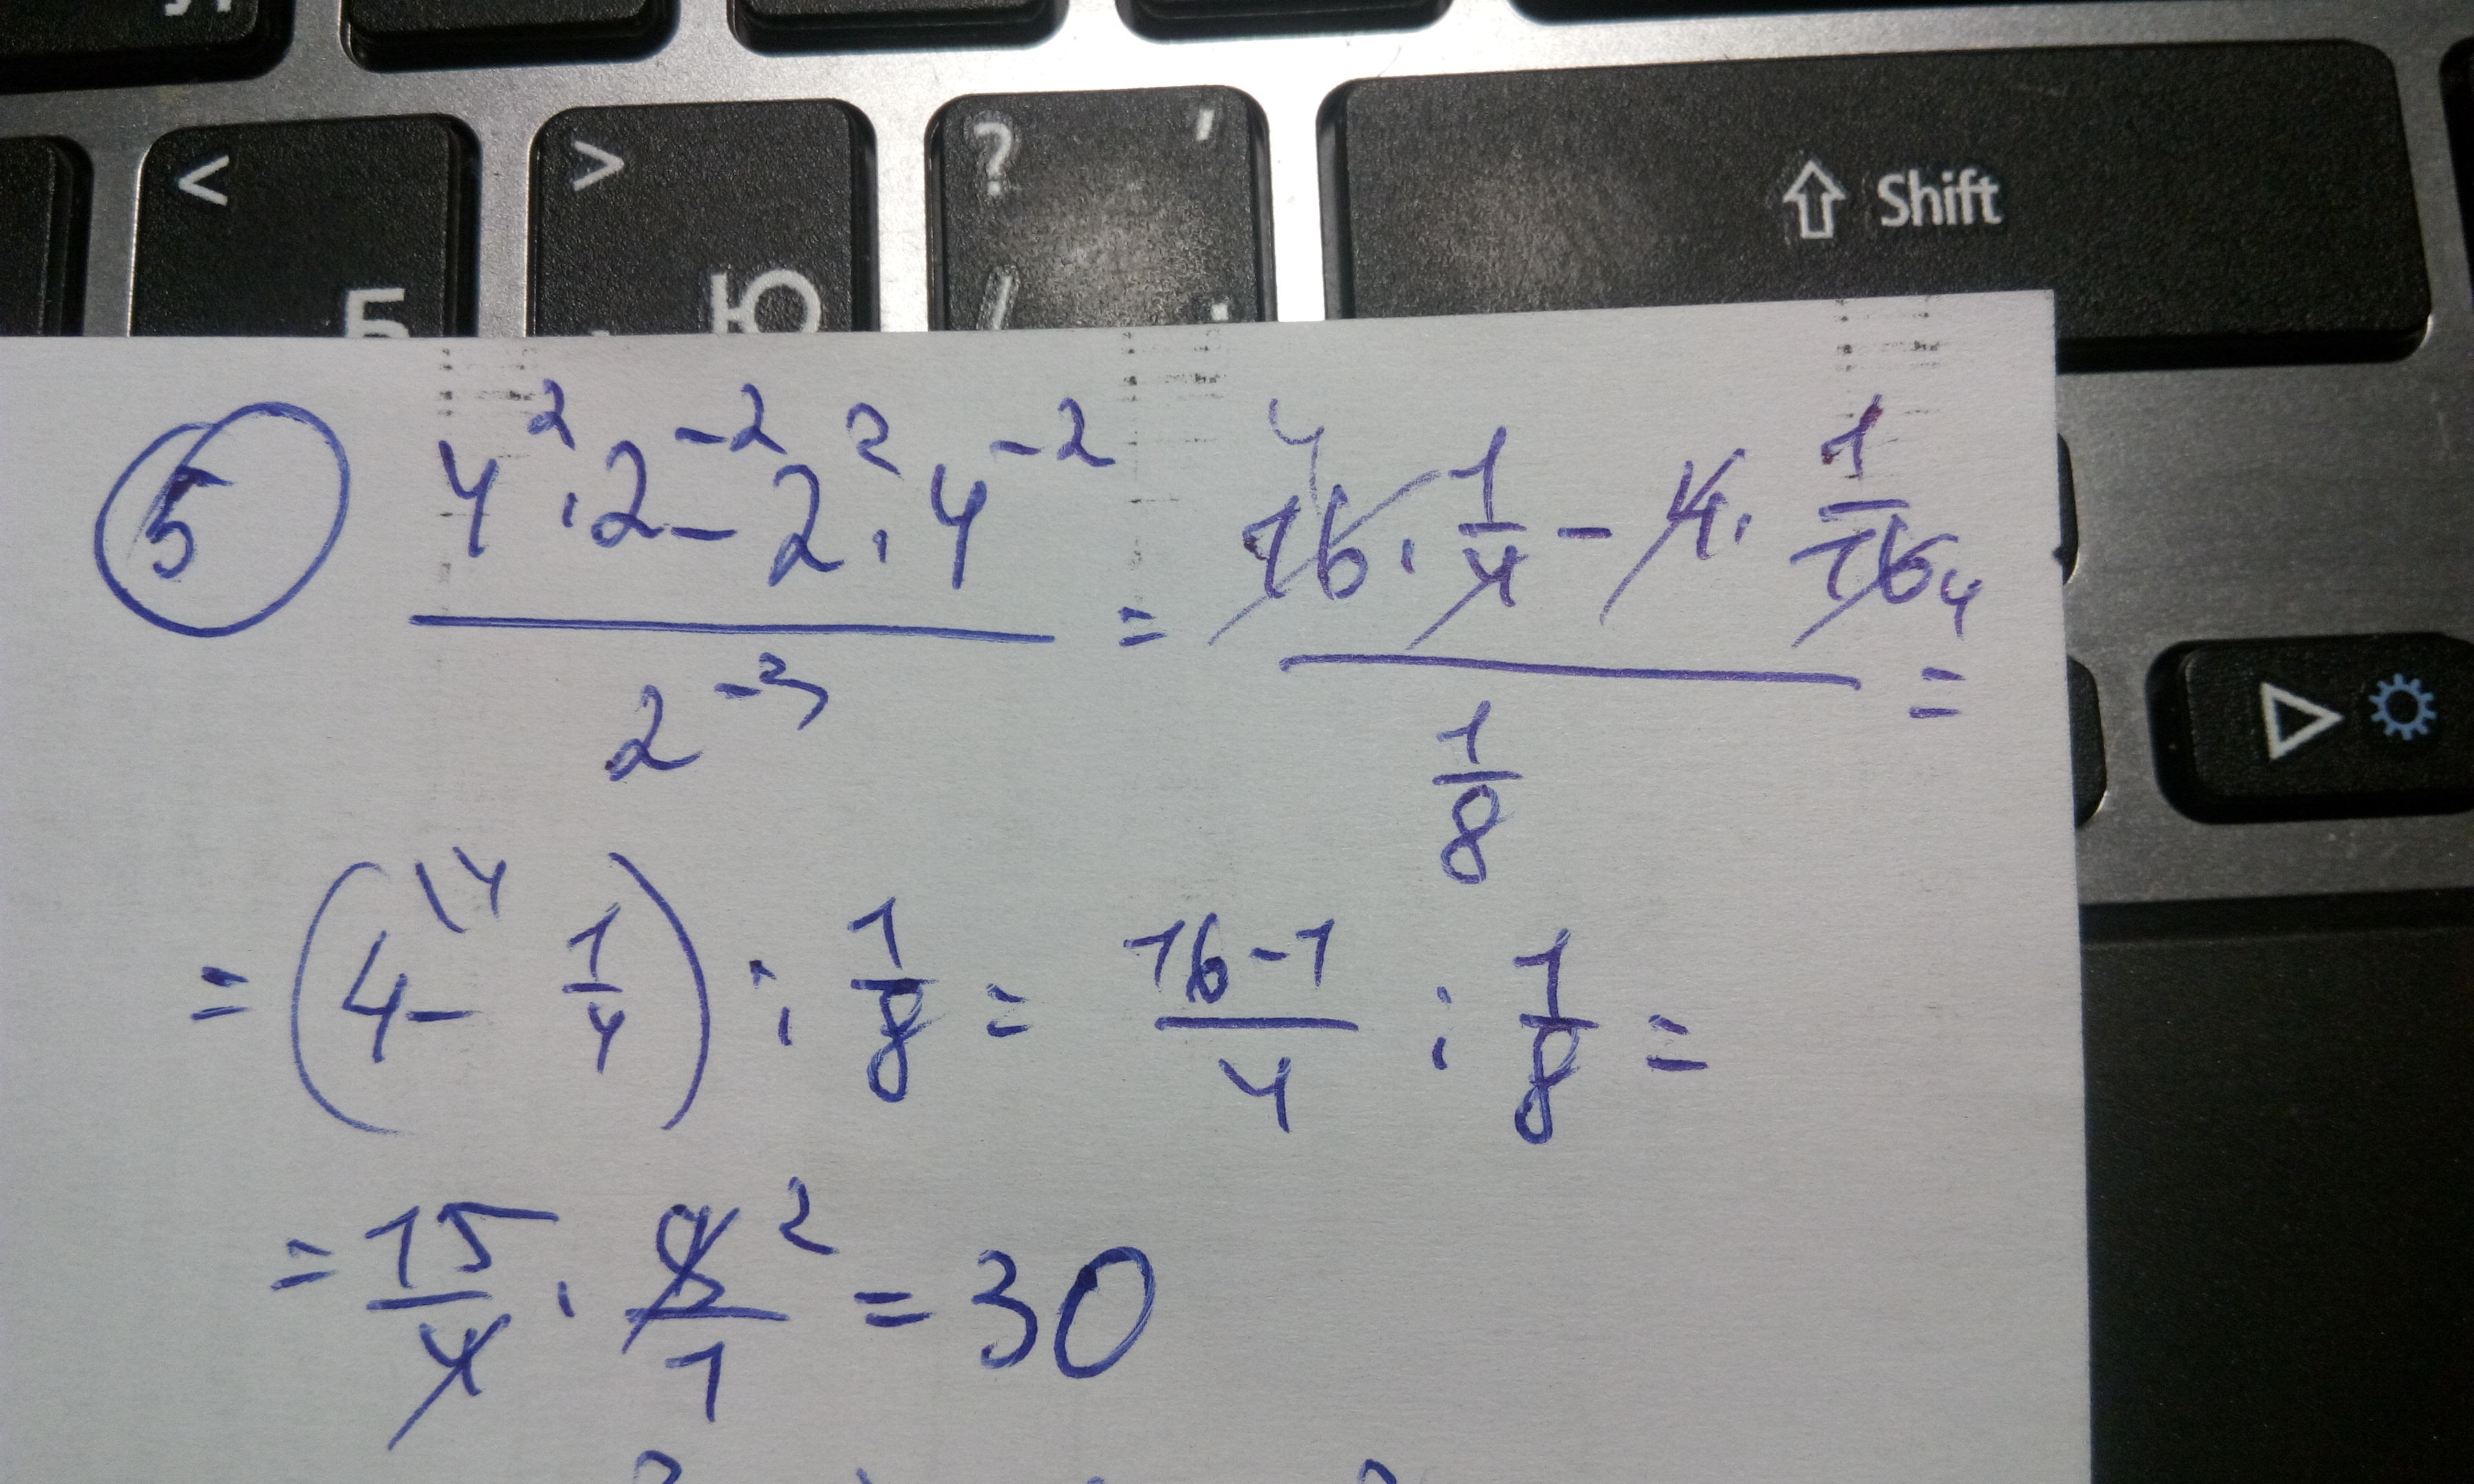 < > ? ,
Б . Ю / .
⇧ Shift
⑤ (4² · 2⁻² − 2² · 4⁻²) / 2⁻³ = (16 · 1/4 − 4 · 1/16) / (1/8) =
= (4 − 1/4) : 1/8 = (16−1)/4 : 1/8 =
= 15/4 · 8/1 = 30